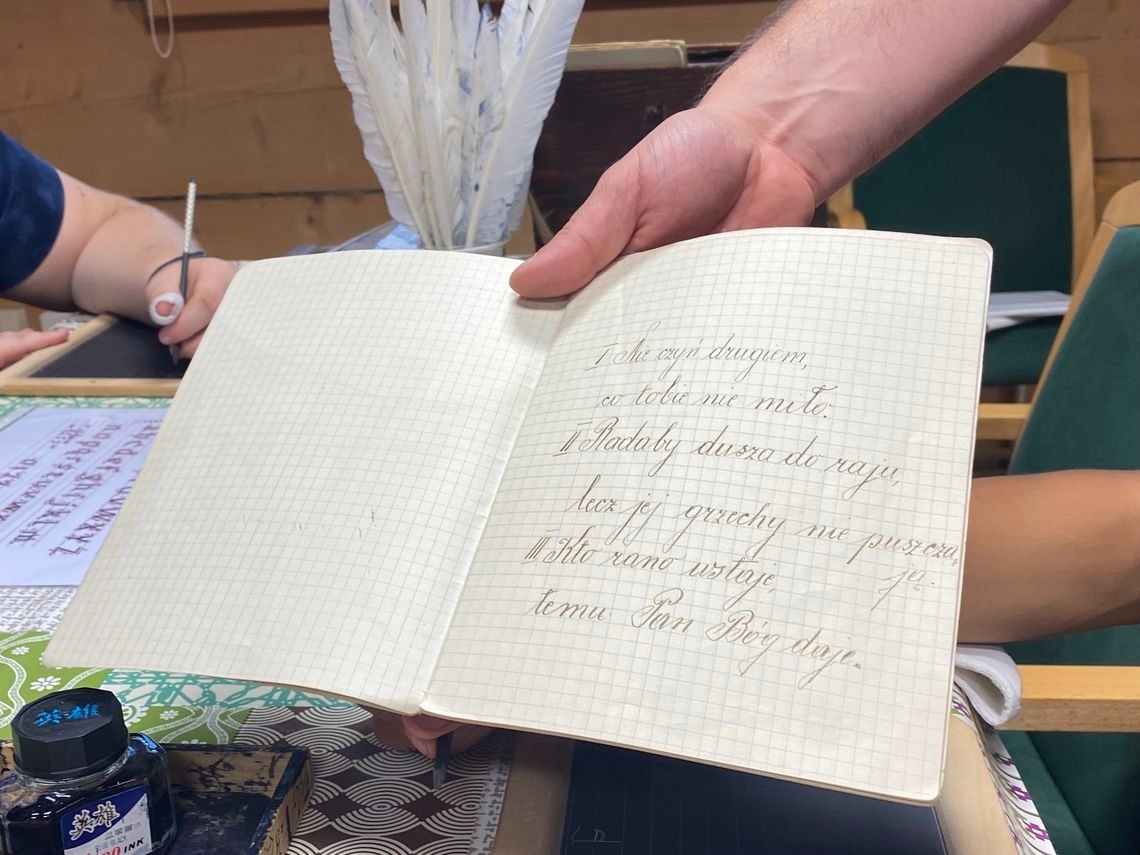 I Nie czyń drugiem,
co tobie nie miło.
II Radaby dusza do raju,
lecz jej grzechy nie puszcza,
ją.
III Kto rano wstaje,
temu Pan Bóg daje.
英雄
英雄
BLUE-BLACK
INK